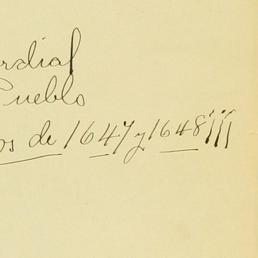 rdial
Pueblo
os de 1647 y 1648 ¡¡¡